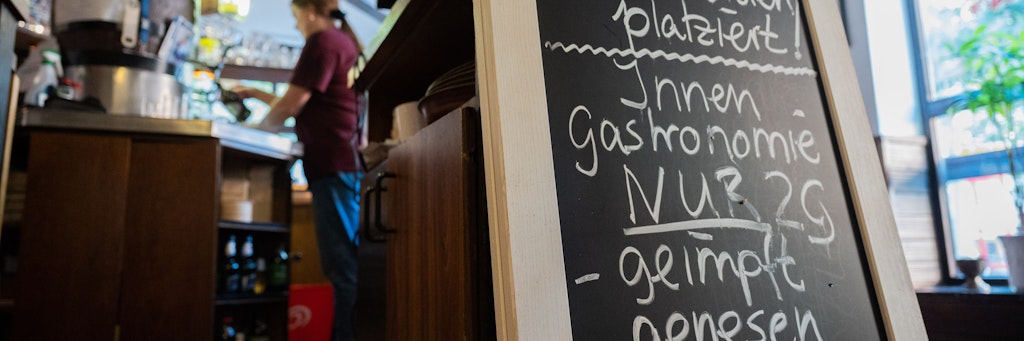 platziert!
Innen
Gastronomie
NUR 2G
- geimpft
genesen